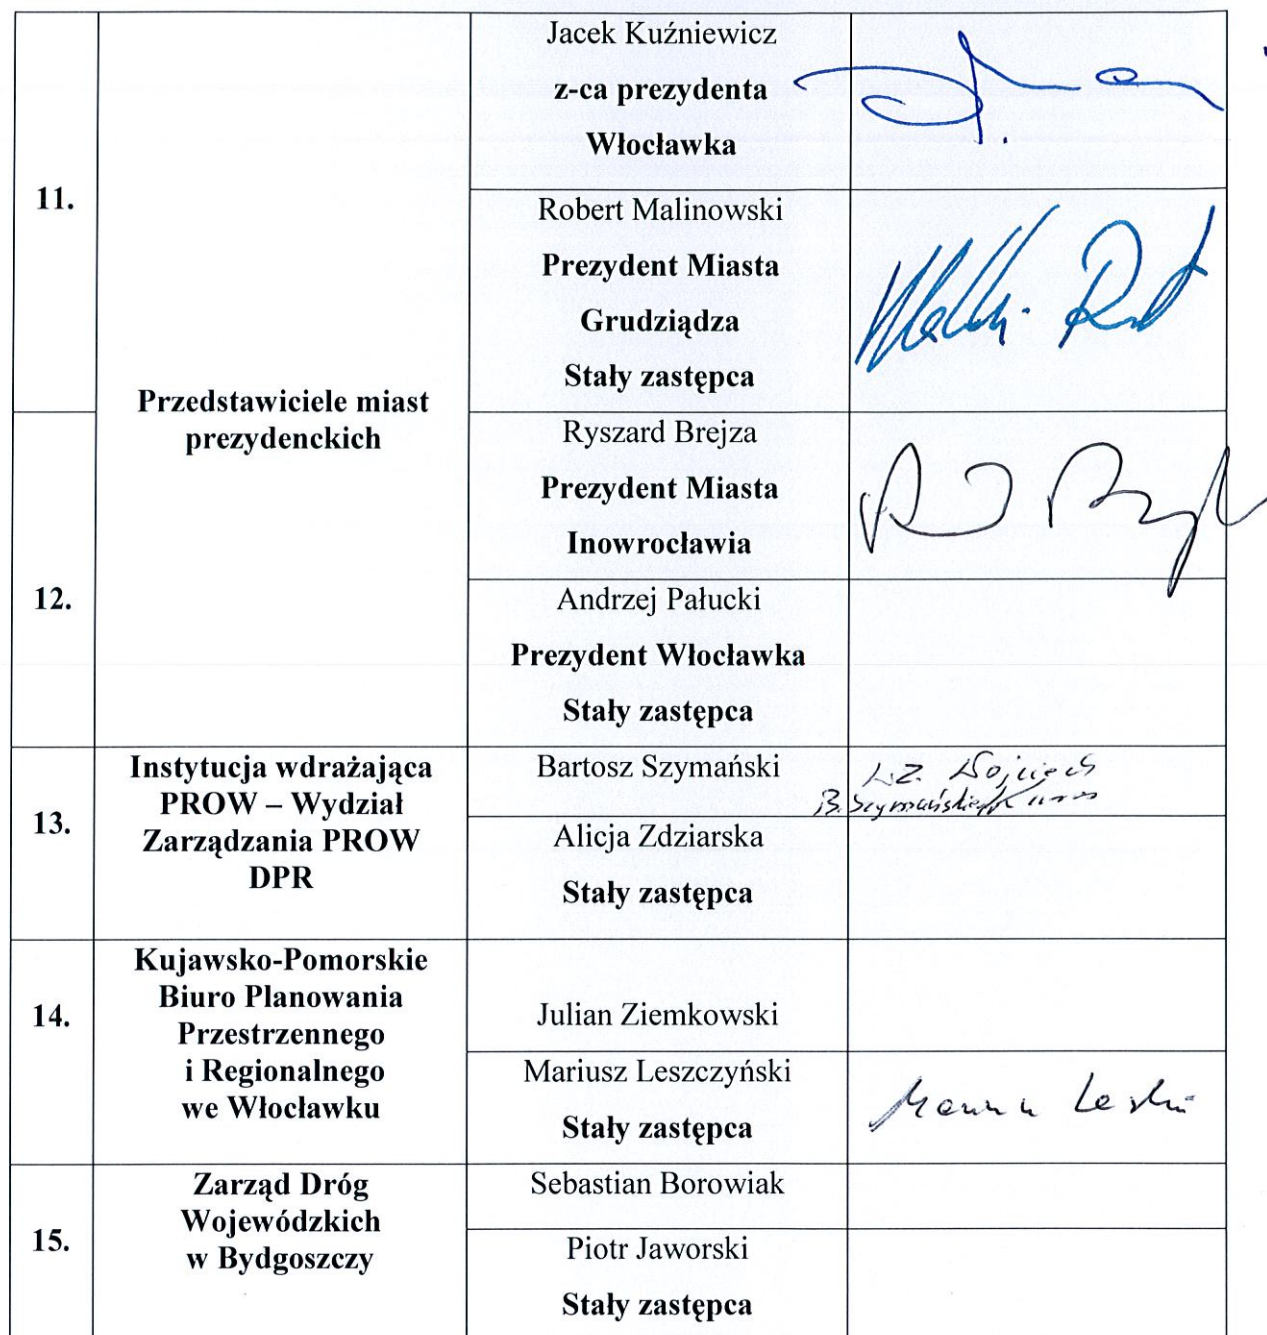 Jacek Kuźniewicz
z-ca prezydenta
Włocławka
11.
Robert Malinowski
Prezydent Miasta
Grudziądza
Stały zastępca
Przedstawiciele miast
prezydenckich
Ryszard Brejza
Prezydent Miasta
Inowrocławia
12.
Andrzej Pałucki
Prezydent Włocławka
Stały zastępca
13.
Instytucja wdrażająca
PROW – Wydział
Zarządzania PROW
DPR
Bartosz Szymański
Wojciech
B. Szymańskiego
Alicja Zdziarska
Stały zastępca
14.
Kujawsko-Pomorskie
Biuro Planowania
Przestrzennego
i Regionalnego
we Włocławku
Julian Ziemkowski
Mariusz Leszczyński
Stały zastępca
15.
Zarząd Dróg
Wojewódzkich
w Bydgoszczy
Sebastian Borowiak
Piotr Jaworski
Stały zastępca